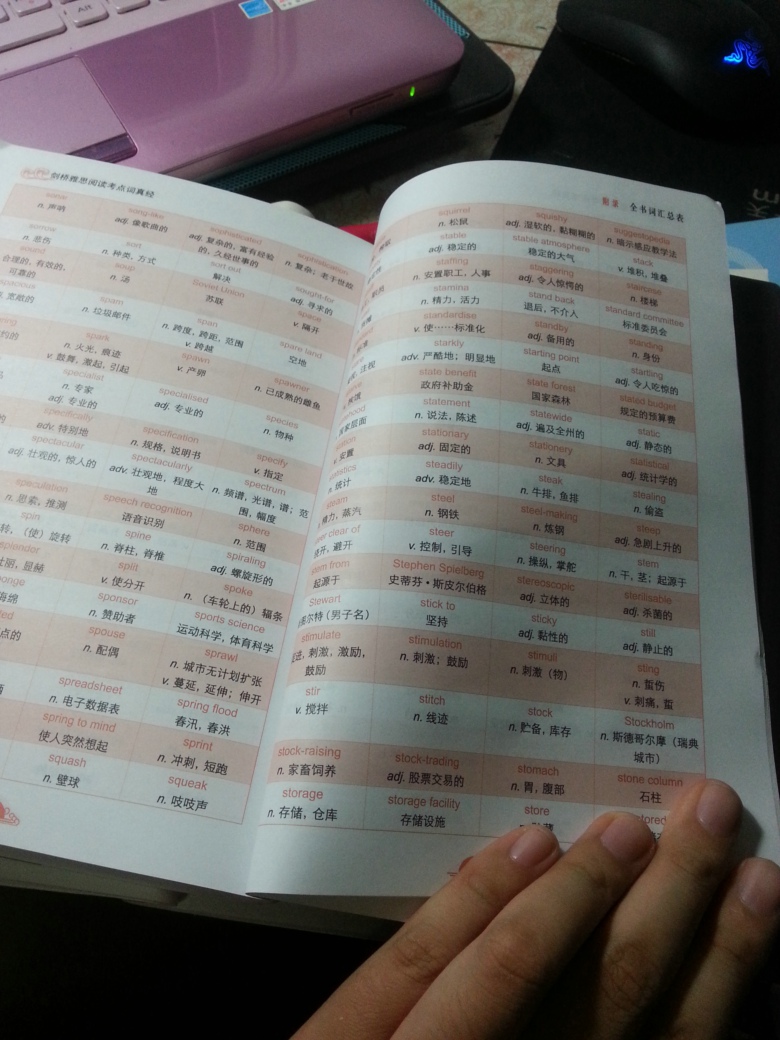 剑桥雅思阅读考点词真经
n. 声响
song-like
adj. 像歌曲的
sophisticated
adj. 复杂的, 富有经验
的, 久经世事的
sophistication
n. 复杂; 老于世故
sorrow
n. 悲伤
sort
n. 种类, 方式
sort out
解决
sought-for
adj. 寻求的
sound
合理的, 有效的,
可靠的
soup
n. 汤
Soviet Union
苏联
space
v. 隔开
spacious
宽敞的
spam
n. 垃圾邮件
span
n. 跨度, 跨距, 范围
v. 跨越
spare land
空地
spark
n. 火光, 痕迹
v. 鼓舞, 激起, 引起
spawn
v. 产卵
spawner
n. 已成熟的雌鱼
specialist
n. 专家
adj. 专业的
specialised
adj. 专业的
species
n. 物种
specifically
adv. 特别地
specification
n. 规格, 说明书
specify
v. 指定
spectacular
adj. 壮观的, 惊人的
spectacularly
adv. 壮观地, 程度大
地
spectrum
n. 频谱, 光谱, 谱; 范
围, 幅度
speculation
n. 思索, 推测
speech recognition
语音识别
sphere
n. 范围
spin
转, (使) 旋转
spine
n. 脊柱, 脊椎
spiraling
adj. 螺旋形的
splendor
壮丽, 显赫
split
v. 使分开
spoke
n. (车轮上的) 辐条
海绵
sponsor
n. 赞助者
sports science
运动科学, 体育科学
spouse
n. 配偶
sprawl
n. 城市无计划扩张
v. 蔓延, 延伸; 伸开
spreadsheet
n. 电子数据表
spring flood
春汛, 春洪
spring to mind
使人突然想起
sprint
n. 冲刺, 短跑
squash
n. 壁球
squeak
n. 吱吱声
附录 全书词汇总表
squirrel
n. 松鼠
squishy
adj. 湿软的, 黏糊糊的
suggestopedia
n. 暗示感应教学法
stable
adj. 稳定的
stable atmosphere
稳定的大气
stack
v. 堆积, 堆叠
staffing
n. 安置职工, 人事
staggering
adj. 令人惊愕的
staircase
n. 楼梯
stamina
n. 精力, 活力
stand back
退后, 不介入
standard committee
标准委员会
standardise
v. 使……标准化
standby
adj. 备用的
standing
n. 身份
starkly
adv. 严酷地; 明显地
starting point
起点
startling
adj. 令人吃惊的
state benefit
政府补助金
state forest
国家森林
stated budget
规定的预算费
statement
n. 说法, 陈述
statewide
adj. 遍及全州的
static
adj. 静态的
v. 安置
stationary
adj. 固定的
stationery
n. 文具
statistical
adj. 统计学的
n. 统计
steadily
adv. 稳定地
steak
n. 牛排, 鱼排
stealing
n. 偷盗
steam
精力, 蒸汽
steel
n. 钢铁
steel-making
n. 炼钢
steep
adj. 急剧上升的
steer clear of
避开
steer
v. 控制, 引导
steering
n. 操纵, 掌舵
stem
n. 干, 茎; 起源于
stem from
起源于
Stephen Spielberg
史蒂芬·斯皮尔伯格
stereoscopic
adj. 立体的
sterilisable
adj. 杀菌的
Stewart
尔特 (男子名)
stick to
坚持
sticky
adj. 黏性的
still
adj. 静止的
stimulate
进, 刺激, 激励,
鼓励
stimulation
n. 刺激; 鼓励
stimuli
n. 刺激 (物)
sting
n. 蜇伤
v. 刺痛, 蜇
stir
v. 搅拌
stitch
n. 线迹
stock
n. 贮备, 库存
Stockholm
n. 斯德哥尔摩 (瑞典
城市)
stock-raising
n. 家畜饲养
stock-trading
adj. 股票交易的
stomach
n. 胃, 腹部
stone column
石柱
storage
n. 存储, 仓库
storage facility
存储设施
store
stored